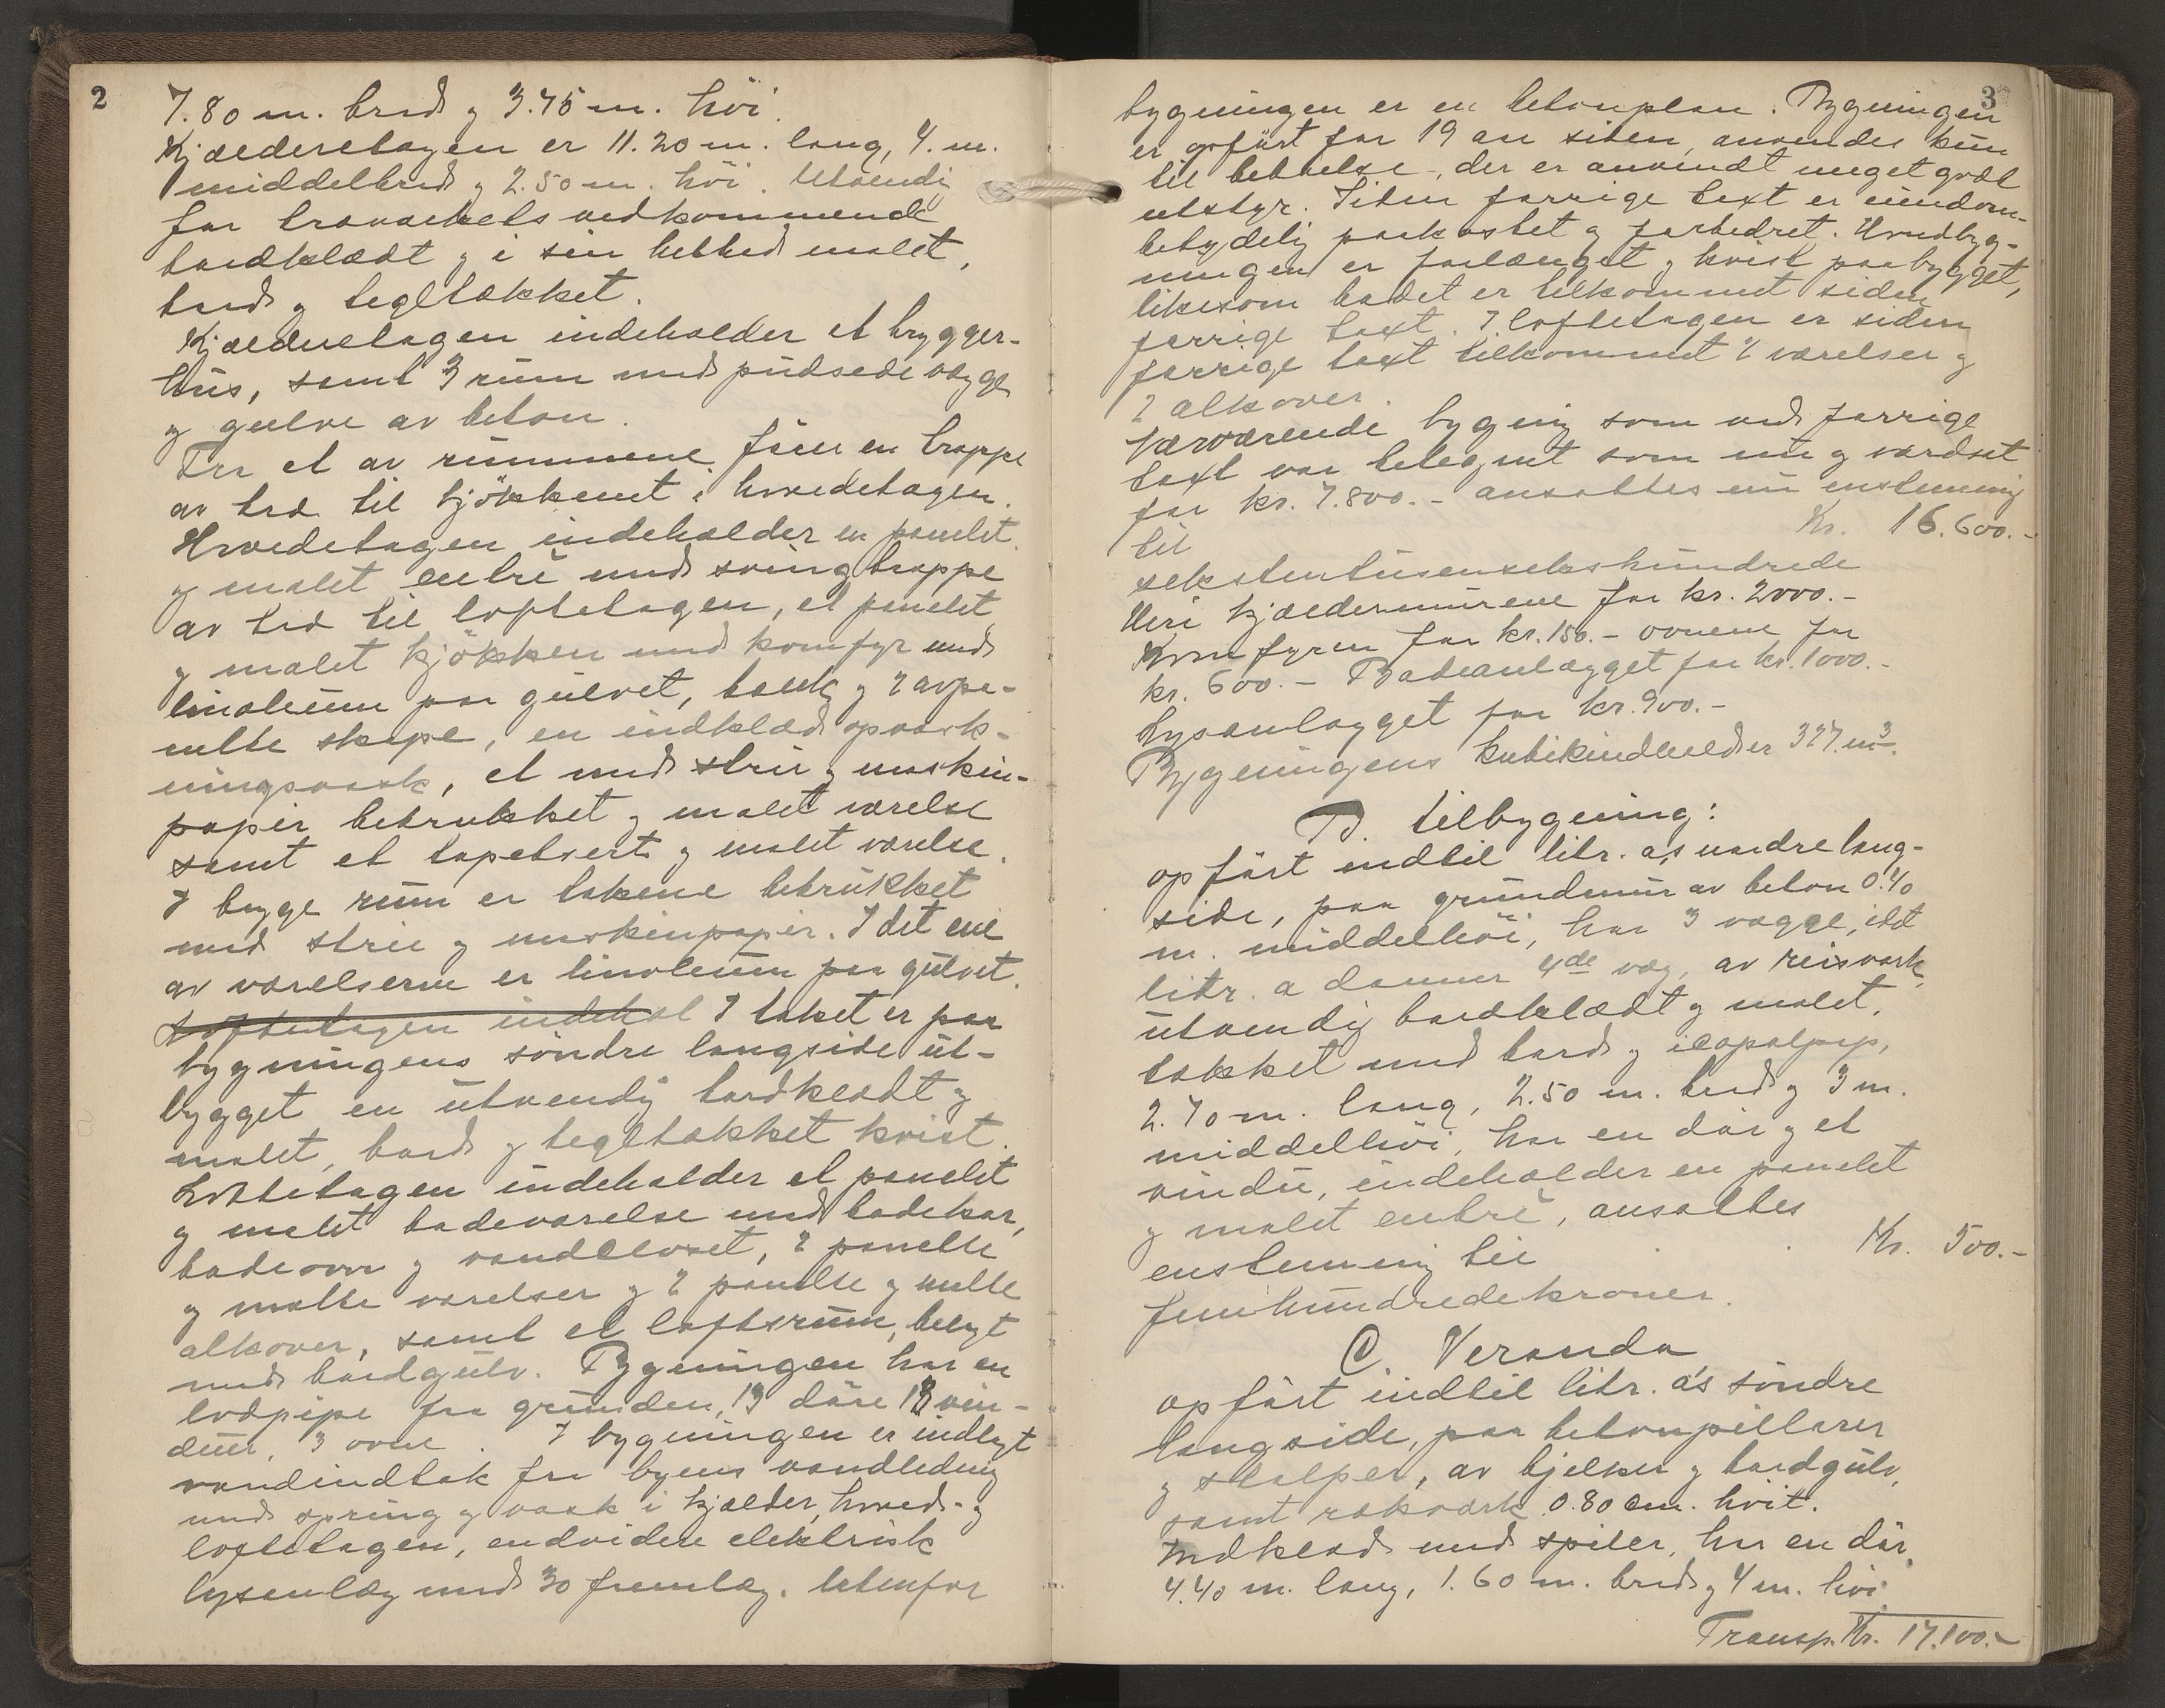 2
7.80 m. bred og 3.75 m. höi.
Kjælderetagen er 11.20 m. lang, 4. m.
middelbred og 2.50 m. höi. Utvendig
for træværkets vedkommende
bordklædt og i sin helhed malet,
bord og tegltækket.
Kjælderetagen indeholder et brygger-
hus, samt 3 rum med pudsede vægge
og gulve av beton.
Fra et av rummene förer en trappe
av træ til kjökkenet i hovedetagen.
Hovedetagen indeholder en panelet
og malet entré med svingtrappe
av træ til loftetagen, et panelet
og malet kjökken med komfyr med
linoleum paa gulvet, bænk og 2 avpa-
nelte skape, en indklæd opvask-
ningsvask, et med strie og maskin-
papir betrukket og malet værelse
samt et tapetsert og malet værelse.
I begge rum er takene betrukket
med strie og maskinpapir. I det ene
av værelserne er linoleum paa gulvet.
Loftetagen indehol I taket er paa
bygningens söndre langside ut-
bygget en utvendig bordklædt og
malet, bord og tegltækket kvist.
Loftetagen indeholder et panelet
og malet badeværelse med badekar,
badeovn og vandkloset, 2 panelte
og malte værelser og 2 panelte og malte
alkover, samt et loftsrum, belagt
med bordgulv. Bygningen har en
lodpipe fra grunden, 13 döre 13 vin-
duer, 3 ovne. I bygningen er indlagt
vandindtak fra byens vandledning
med spring og vask i kjælder, hoved- og
loftetagen, endvidere elektrisk
lysanlæg med 30 fremlæg. Utenfor
3
bygningen er en betonplan. Bygningen
er opfört for 19 aar siden, anvendes kun
til beboelse, der er anvendt meget godt
utstyr. Siden forrige taxt er eiendom-
betydelig paakostet og forbedret. Hovedbyg-
ningen er forlænget og kvist paabygget,
likesom badet er tilkommet siden
forrige taxt. I loftetagen er siden
forrige taxt tilkommet 2 værelser og
2 alkover.
Nærværende bygning som ved forrige
taxt var betegnet som ny og værdsat
for kr. 7.800.- ansættes nu enstemmig
til Kr. 16.600.-
sekstentusensekshundrede
Heri kjældermurene for kr. 2000.-
Komfyren for kr. 150.- ovnene for
kr. 600.- Badeanlægget for kr. 1000.-
Lysanlægget for kr. 900.-
Bygningens kubikindhold er 327 m³.
B. tilbygning:
opfört indtil litr. a's nordre lang-
side, paa grundmur av beton 0.40
m. middelhöi, har 3 vægge, idet
litr. a danner 4de væg, av reisverk,
utvendig bordklædt og malet,
tækket med bord og icopalpap,
2.70 m. lang, 2.50 m. bred og 3 m.
middelhöi, har en dör og et
vindu, indeholder en panelet
og malet entré, ansættes
enstemmig til Kr. 500.-
femhundredekroner.
C. Veranda
opfört indtil litr. a's söndre
langside, paa betonpillarer
og stolper, av bjelker og bordgulv,
samt rækværk 0.80 cm. höit.
Indklæd med spiler, har en dör,
4.40 m. lang, 1.60 m. bred og 4 m. höi.
Transp. Kr. 17.100.-